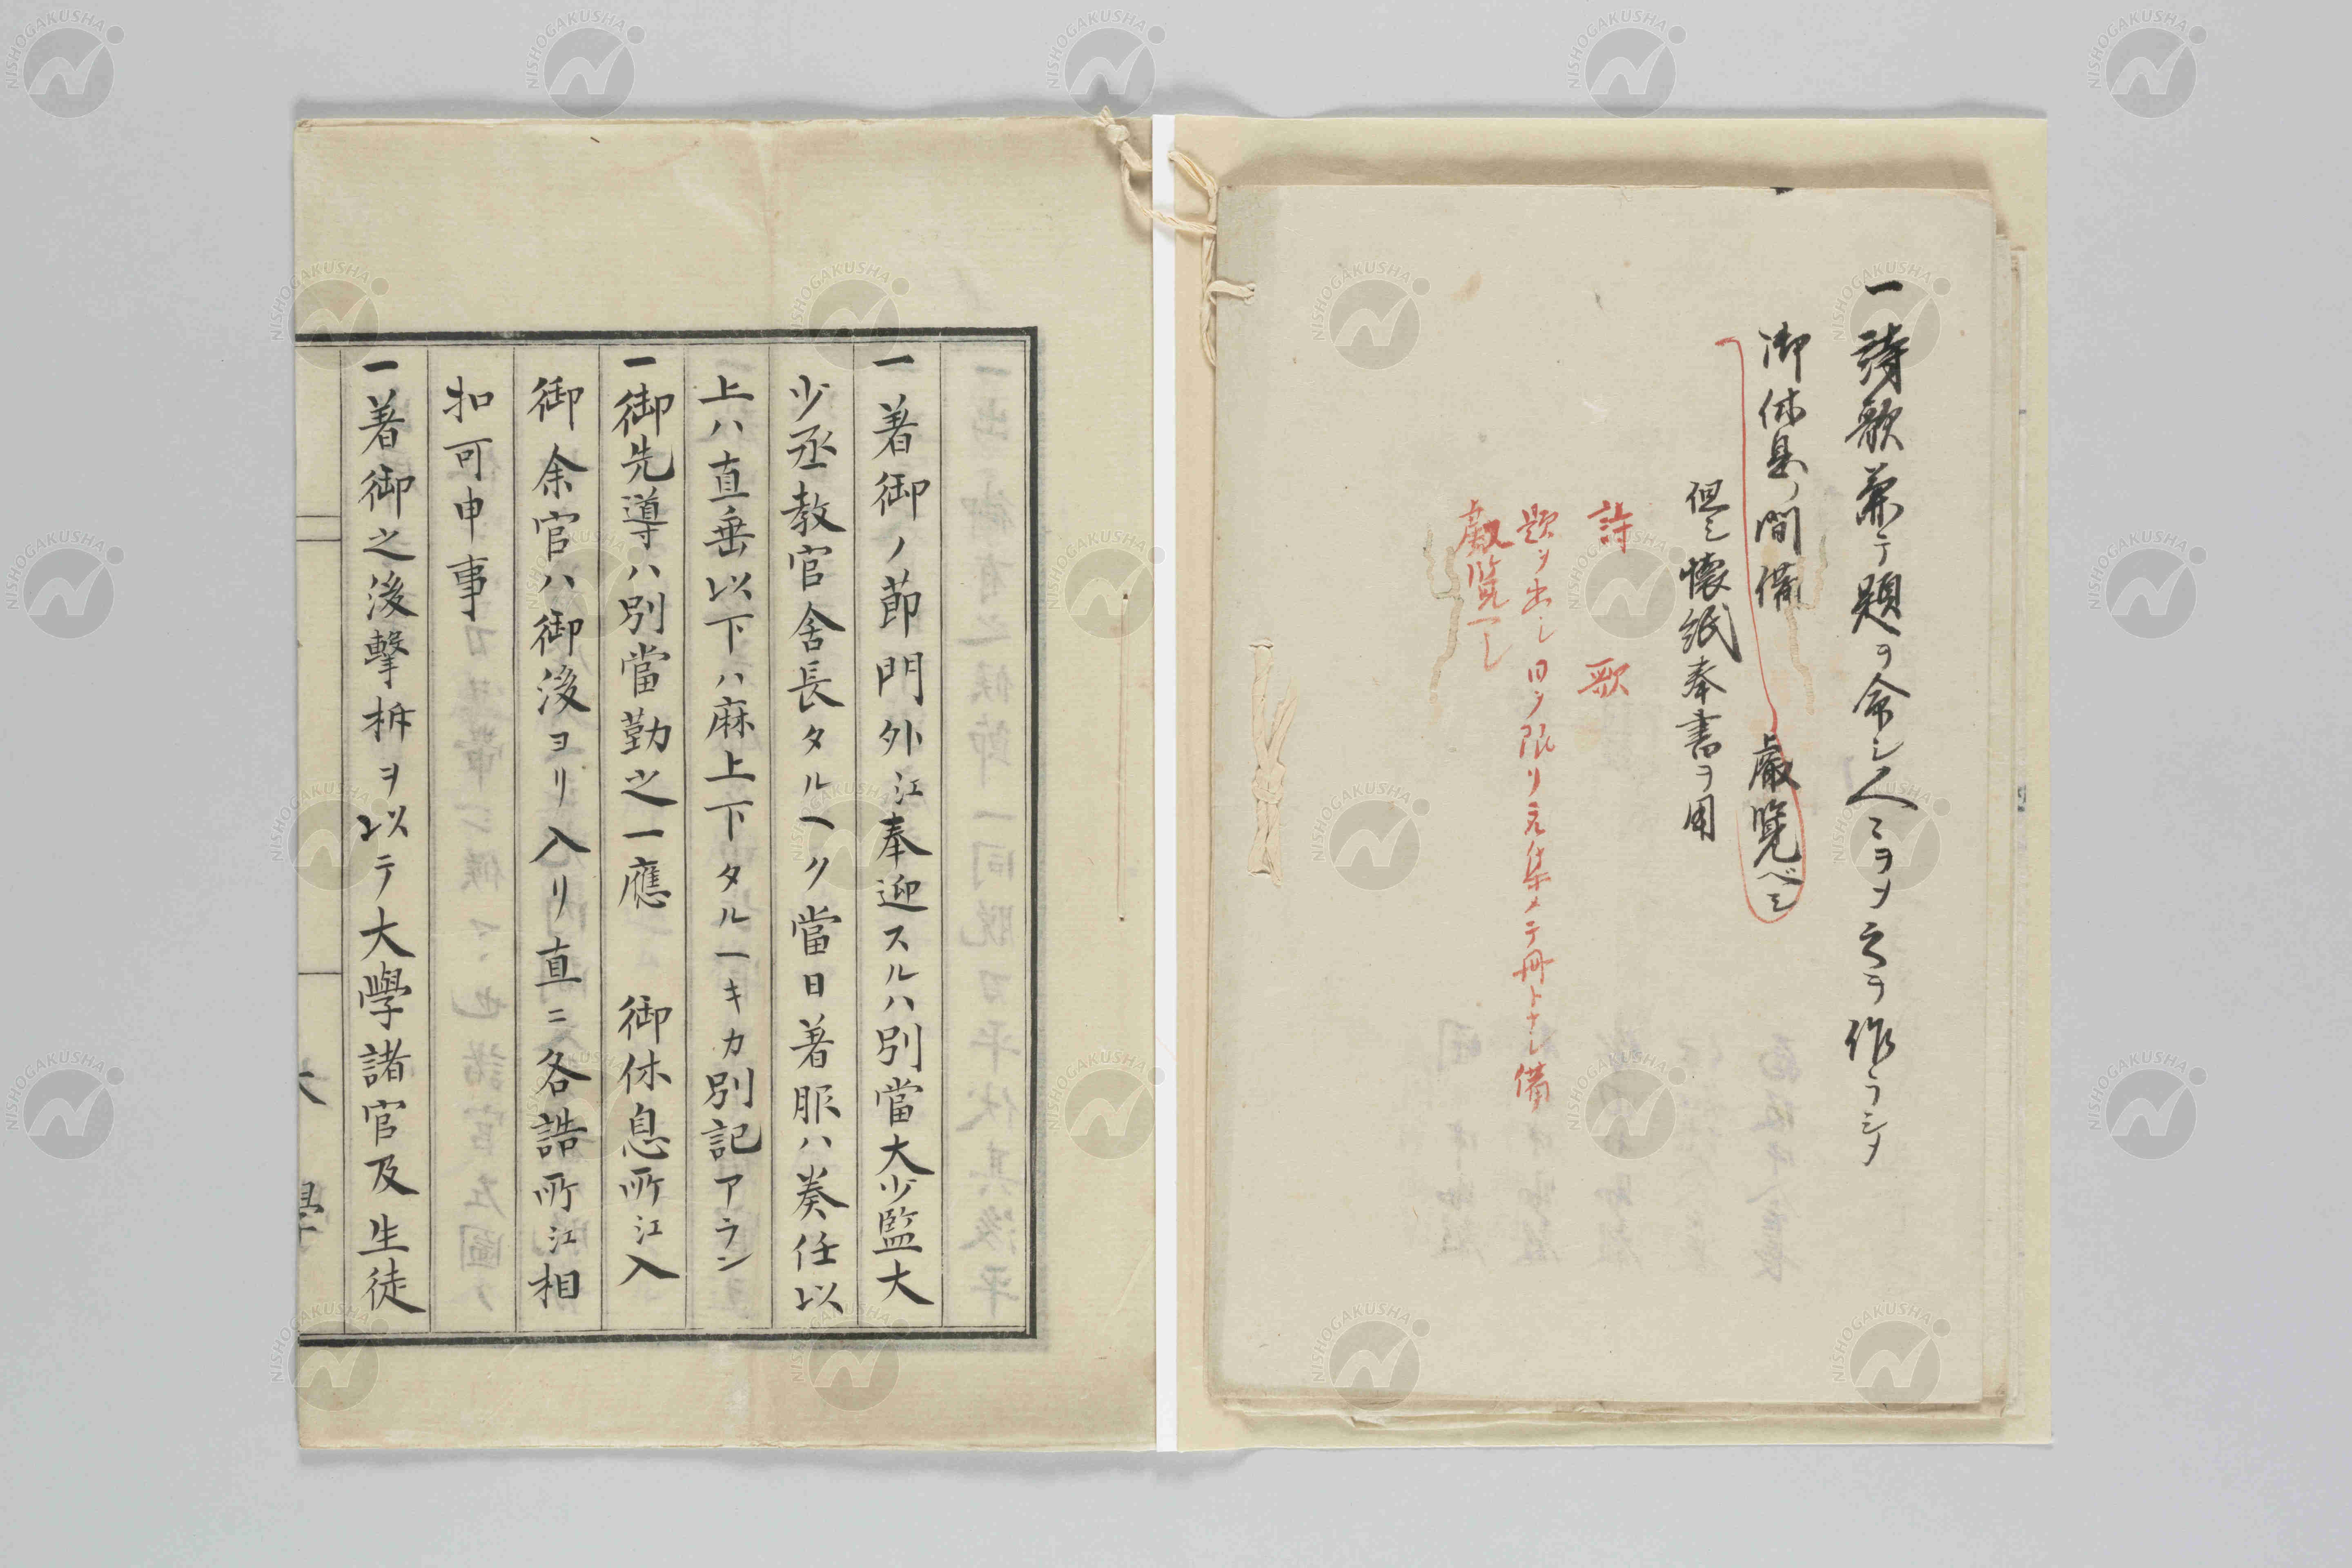 一詩歌兼テ題ヲ命シ人ミヲメ之ヲ作ラシメ
御休息ノ間備 叡覧ベシ
但シ懐紙奉書ヲ用
詩 歌
題ヲ出シ日ヲ限リ集メテ冊トナシ備
叡覧ヘシ
一著御ノ節門外江奉迎スルハ別當大少監大
少丞教官舍長タルヘク當日著服ハ奏任以
上ハ直垂以下ハ麻上下タルヘキカ別記アラン
一御先導ハ別當勤之一應 御休息所江入
御余官ハ御後ヨリ入リ直ニ各誥所江相
扣可申事
一著御之後擊柝ヲ以テ大學諸官及生徒
大學
NISHOGAKUSHA